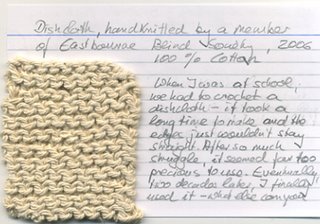 Dishcloth, handknitted by a member
of Eastbourne Blind Society, 2006
100% Cotton
When I was at school,
we had to crochet a
dishcloth - it took a
long time to make, and the
edges just wouldn't stay
straight. After so much
struggle, it seemed far too
precious to use. Eventually,
two decades later, I finally
used it - what else can you